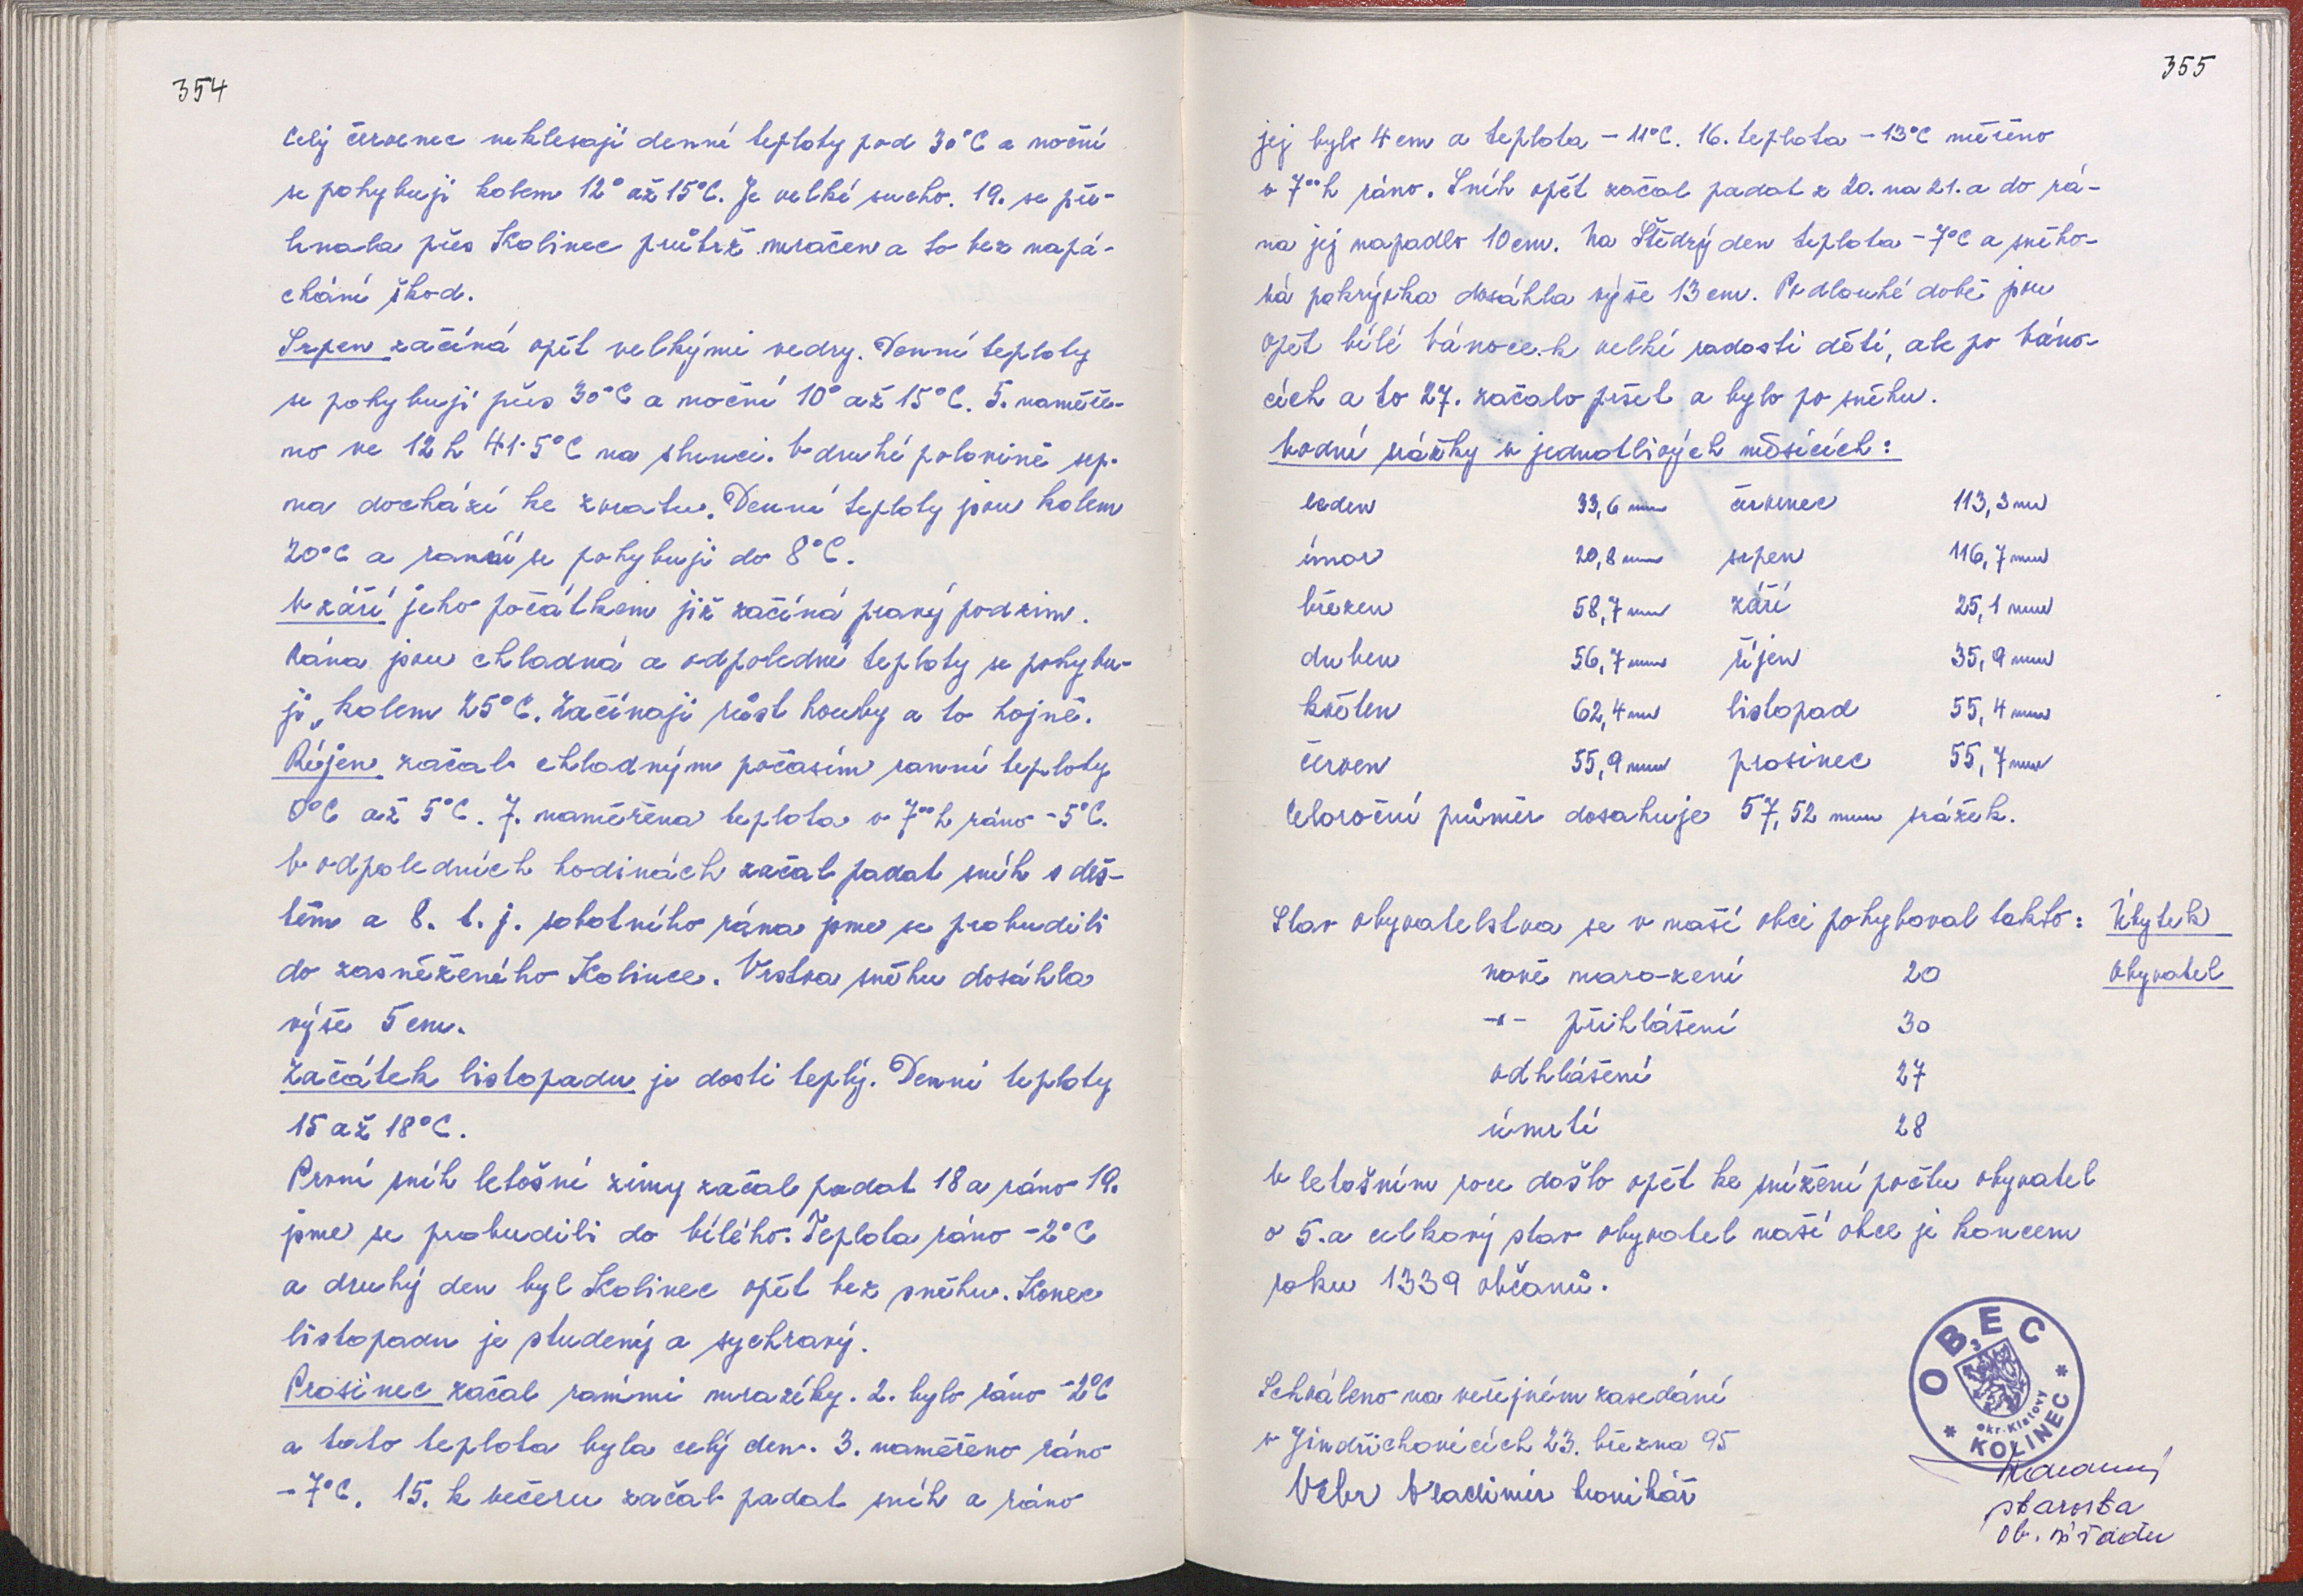 354
Celý červenec neklesají denní teploty pod 30°C a noční
se pohybují kolem 12° až 15°C. Je velké sucho. 19. se pře-
hnala přes Kolinec průtrž mračen a to bez napá-
chání škod.
Srpen začíná opět velkými vedry. Denní teploty
se pohybují přes 30°C a noční 10° až 15°C. 5. naměře-
no ve 12 h 41·5°C na slunci. V druhé polovině srp-
na dochází ke zvratu. Denní teploty jsou kolem
20°C a ranní se pohybují do 8°C.
V září jeho počátkem již začíná pravý podzim.
Rána jsou chladná a odpolední teploty se pohybu-
jí kolem 25°C. Začínají růst houby a to hojně.
Říjen začal chladným počasím ranní teploty
0°C až 5°C. 7. naměřena teplota v 7⁰⁰h ráno -5°C.
V odpoledních hodinách začal padat sníh s deš-
těm a 8. t. j. sobotního rána jsme se probudili
do zasněženého Kolince. Vrstva sněhu dosáhla
výše 5 cm.
Začátek listopadu je dosti teplý. Denní teploty
15 až 18°C.
První sníh letošní zimy začal padat 18 a ráno 19.
jsme se probudili do bílého. Teplota ráno -2°C
a druhý den byl Kolinec opět bez sněhu. Konec
listopadu je studený a sychravý.
Prosinec začal ranními mrazíky. 2. bylo ráno -2°C
a tato teplota byla celý den. 3. naměřeno ráno
-7°C. 15. k večeru začal padat sníh a ráno
355
jej bylo 4 cm a teplota -11°C. 16. teplota -13°C měřeno
v 7⁰⁰h ráno. Sníh opět začal padat z 20. na 21. a do rá-
na jej napadlo 10 cm. Na Štědrý den teplota -7°C a sněho-
vá pokrývka dosáhla výše 13 cm. Po dlouhé době jsou
opět bílé vánoce k velké radosti dětí, ale po váno-
cích a to 27. začalo pršet a bylo po sněhu.
Vodní srážky v jednotlivých měsících:
leden 33,6 mm červenec 113,3 mm
únor 20,8 mm srpen 116,7 mm
březen 58,7 mm září 25,1 mm
duben 56,7 mm říjen 35,9 mm
květen 62,4 mm listopad 55,4 mm
červen 55,9 mm prosinec 55,7 mm
Celoroční průměr dosahuje 57,52 mm srážek.
Stav obyvatelstva se v naší obci pohyboval takto: Úbytek
nově naro-zení 20 obyvatel
-"- přihlášení 30
odhlášení 27
úmrtí 28
V letošním roce došlo opět ke snížení počtu obyvatel
o 5. a celkový stav obyvatel naší obce je koncem
roku 1339 občanů.
OBEC
okr. Klatovy
* KOLINEC *
Schváleno na veřejném zasedání
v Jindřichovicích 23. března 95
Vrbr Vladimír kronikář
starosta
ob. úřadu